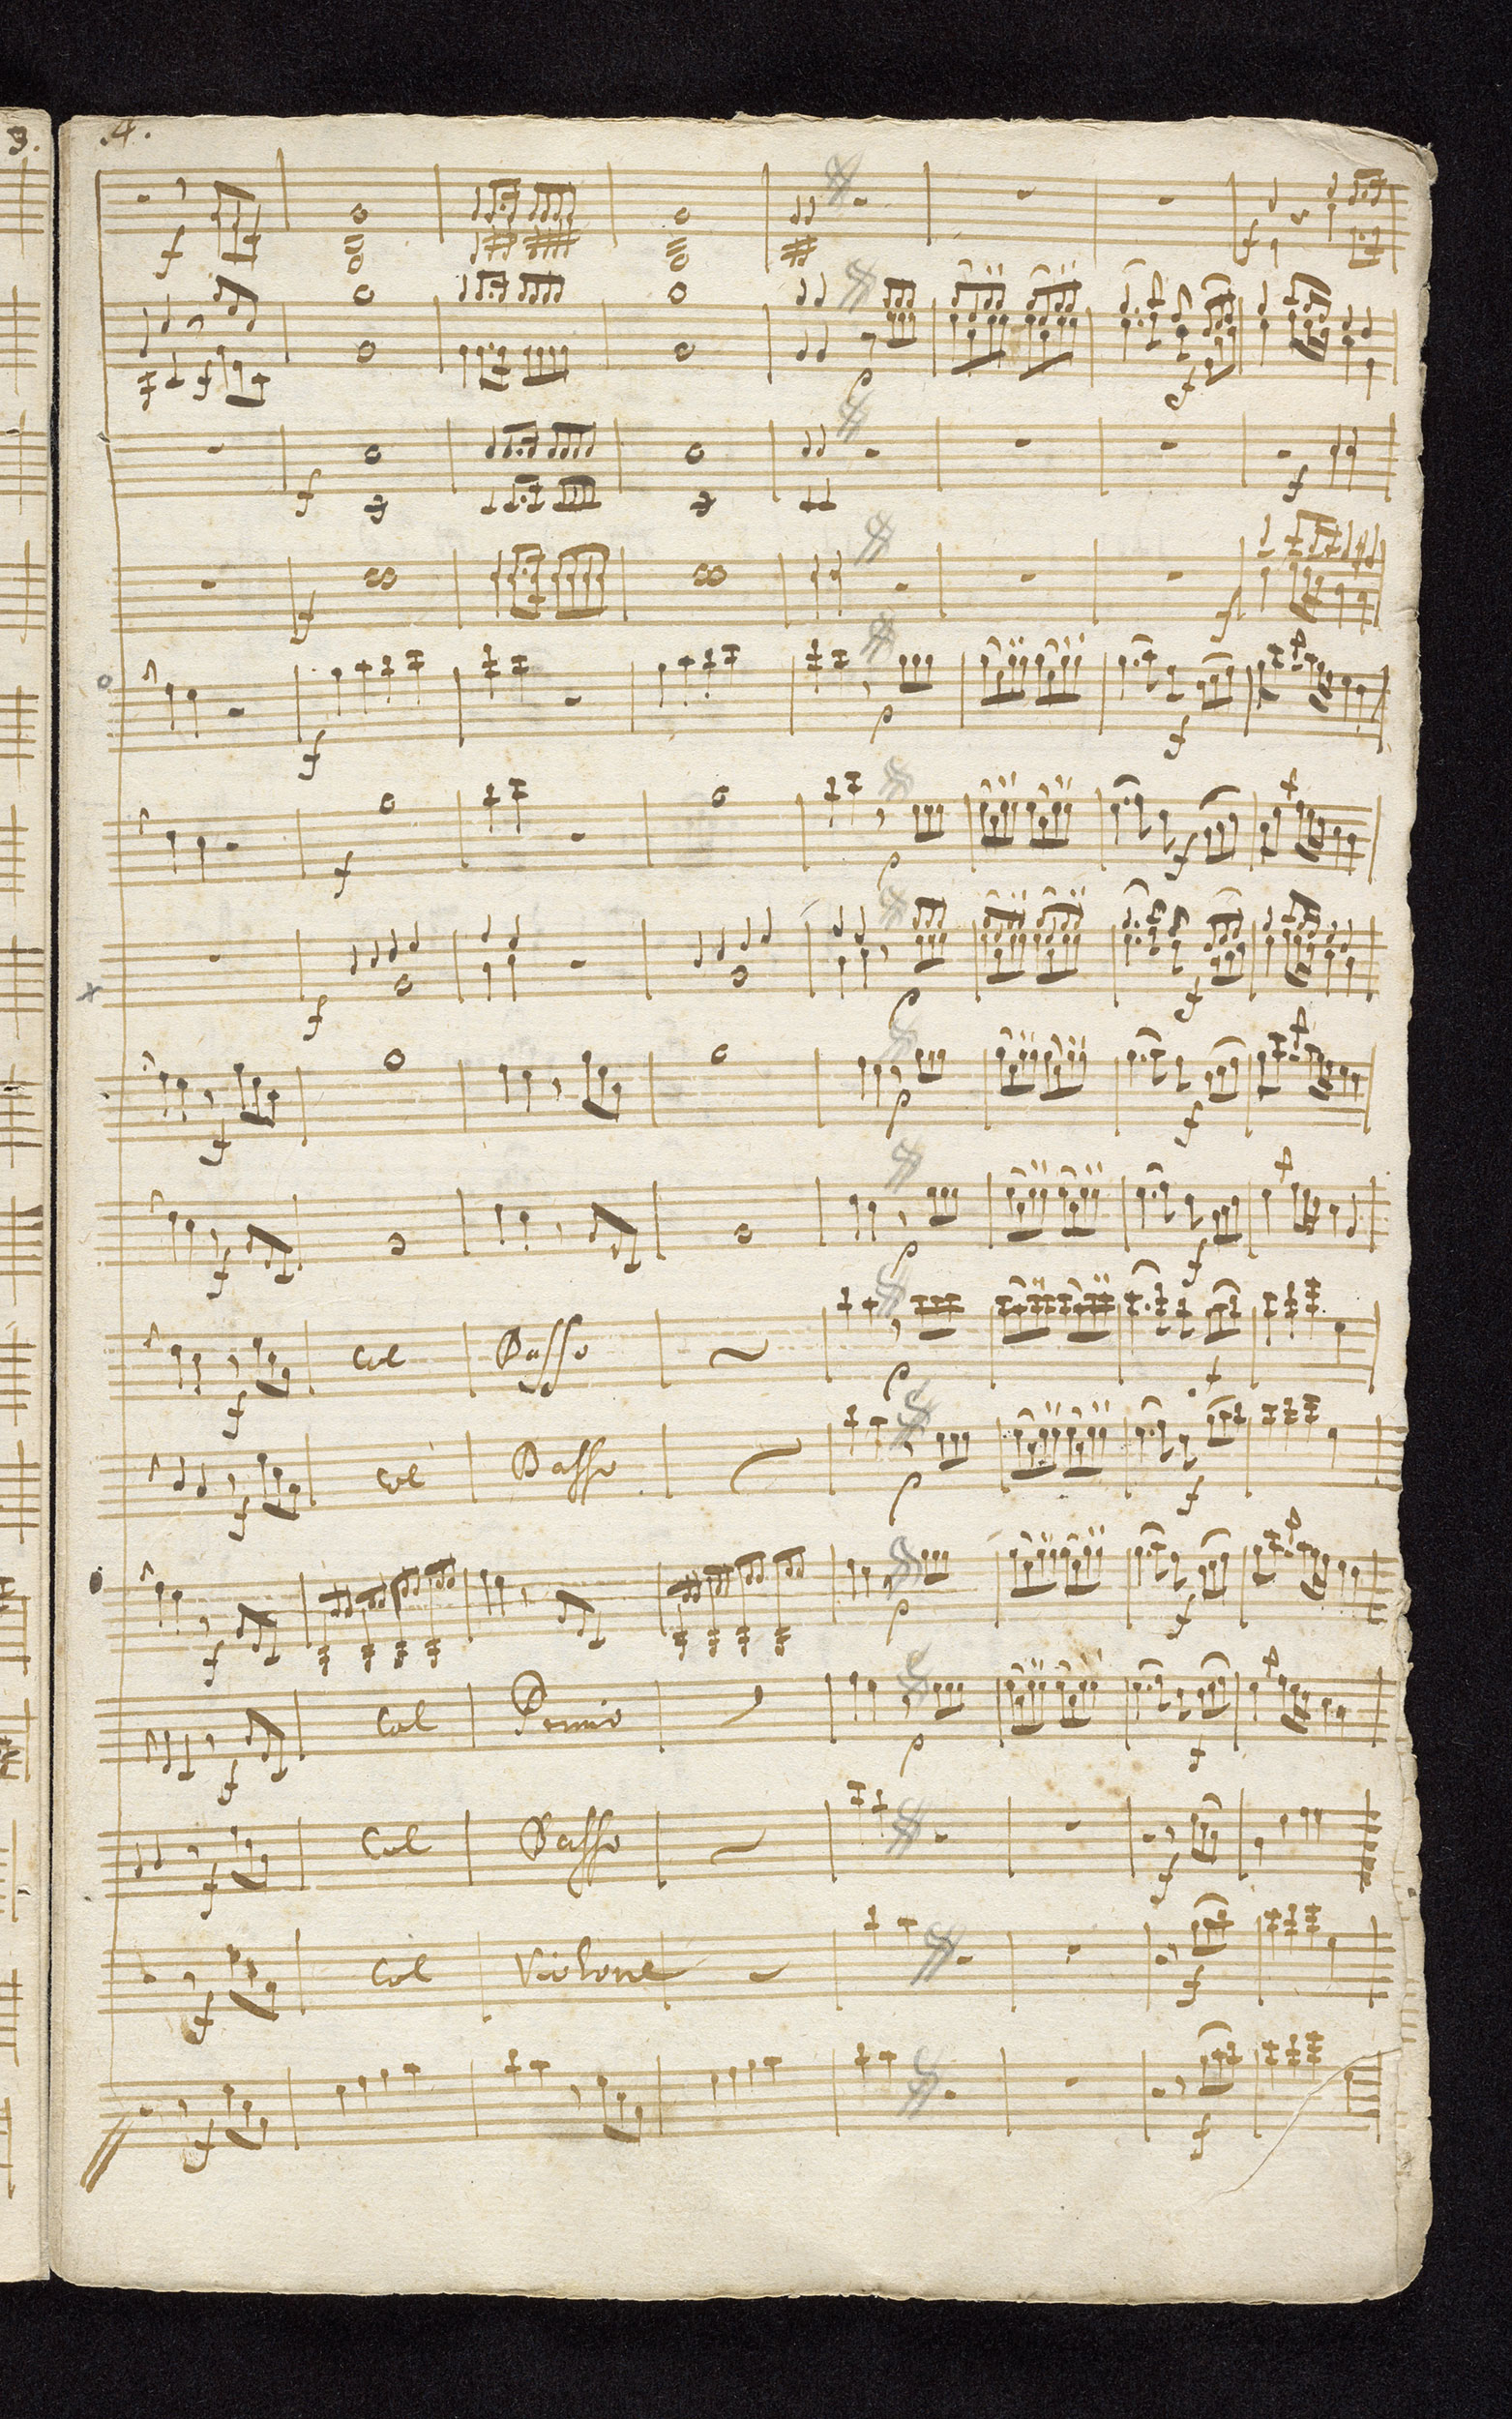 3.
.4.
f
f
f
p
f
f
f
f
f
f
p
f
f
p
f
f
p
f
f
p
f
f
p
f
f
Col Basso
p
f
Col Basso
p
f
f
p
f
f
Col Primo
p
f
f
Col Basso
f
f
Col Violone
f
f
f